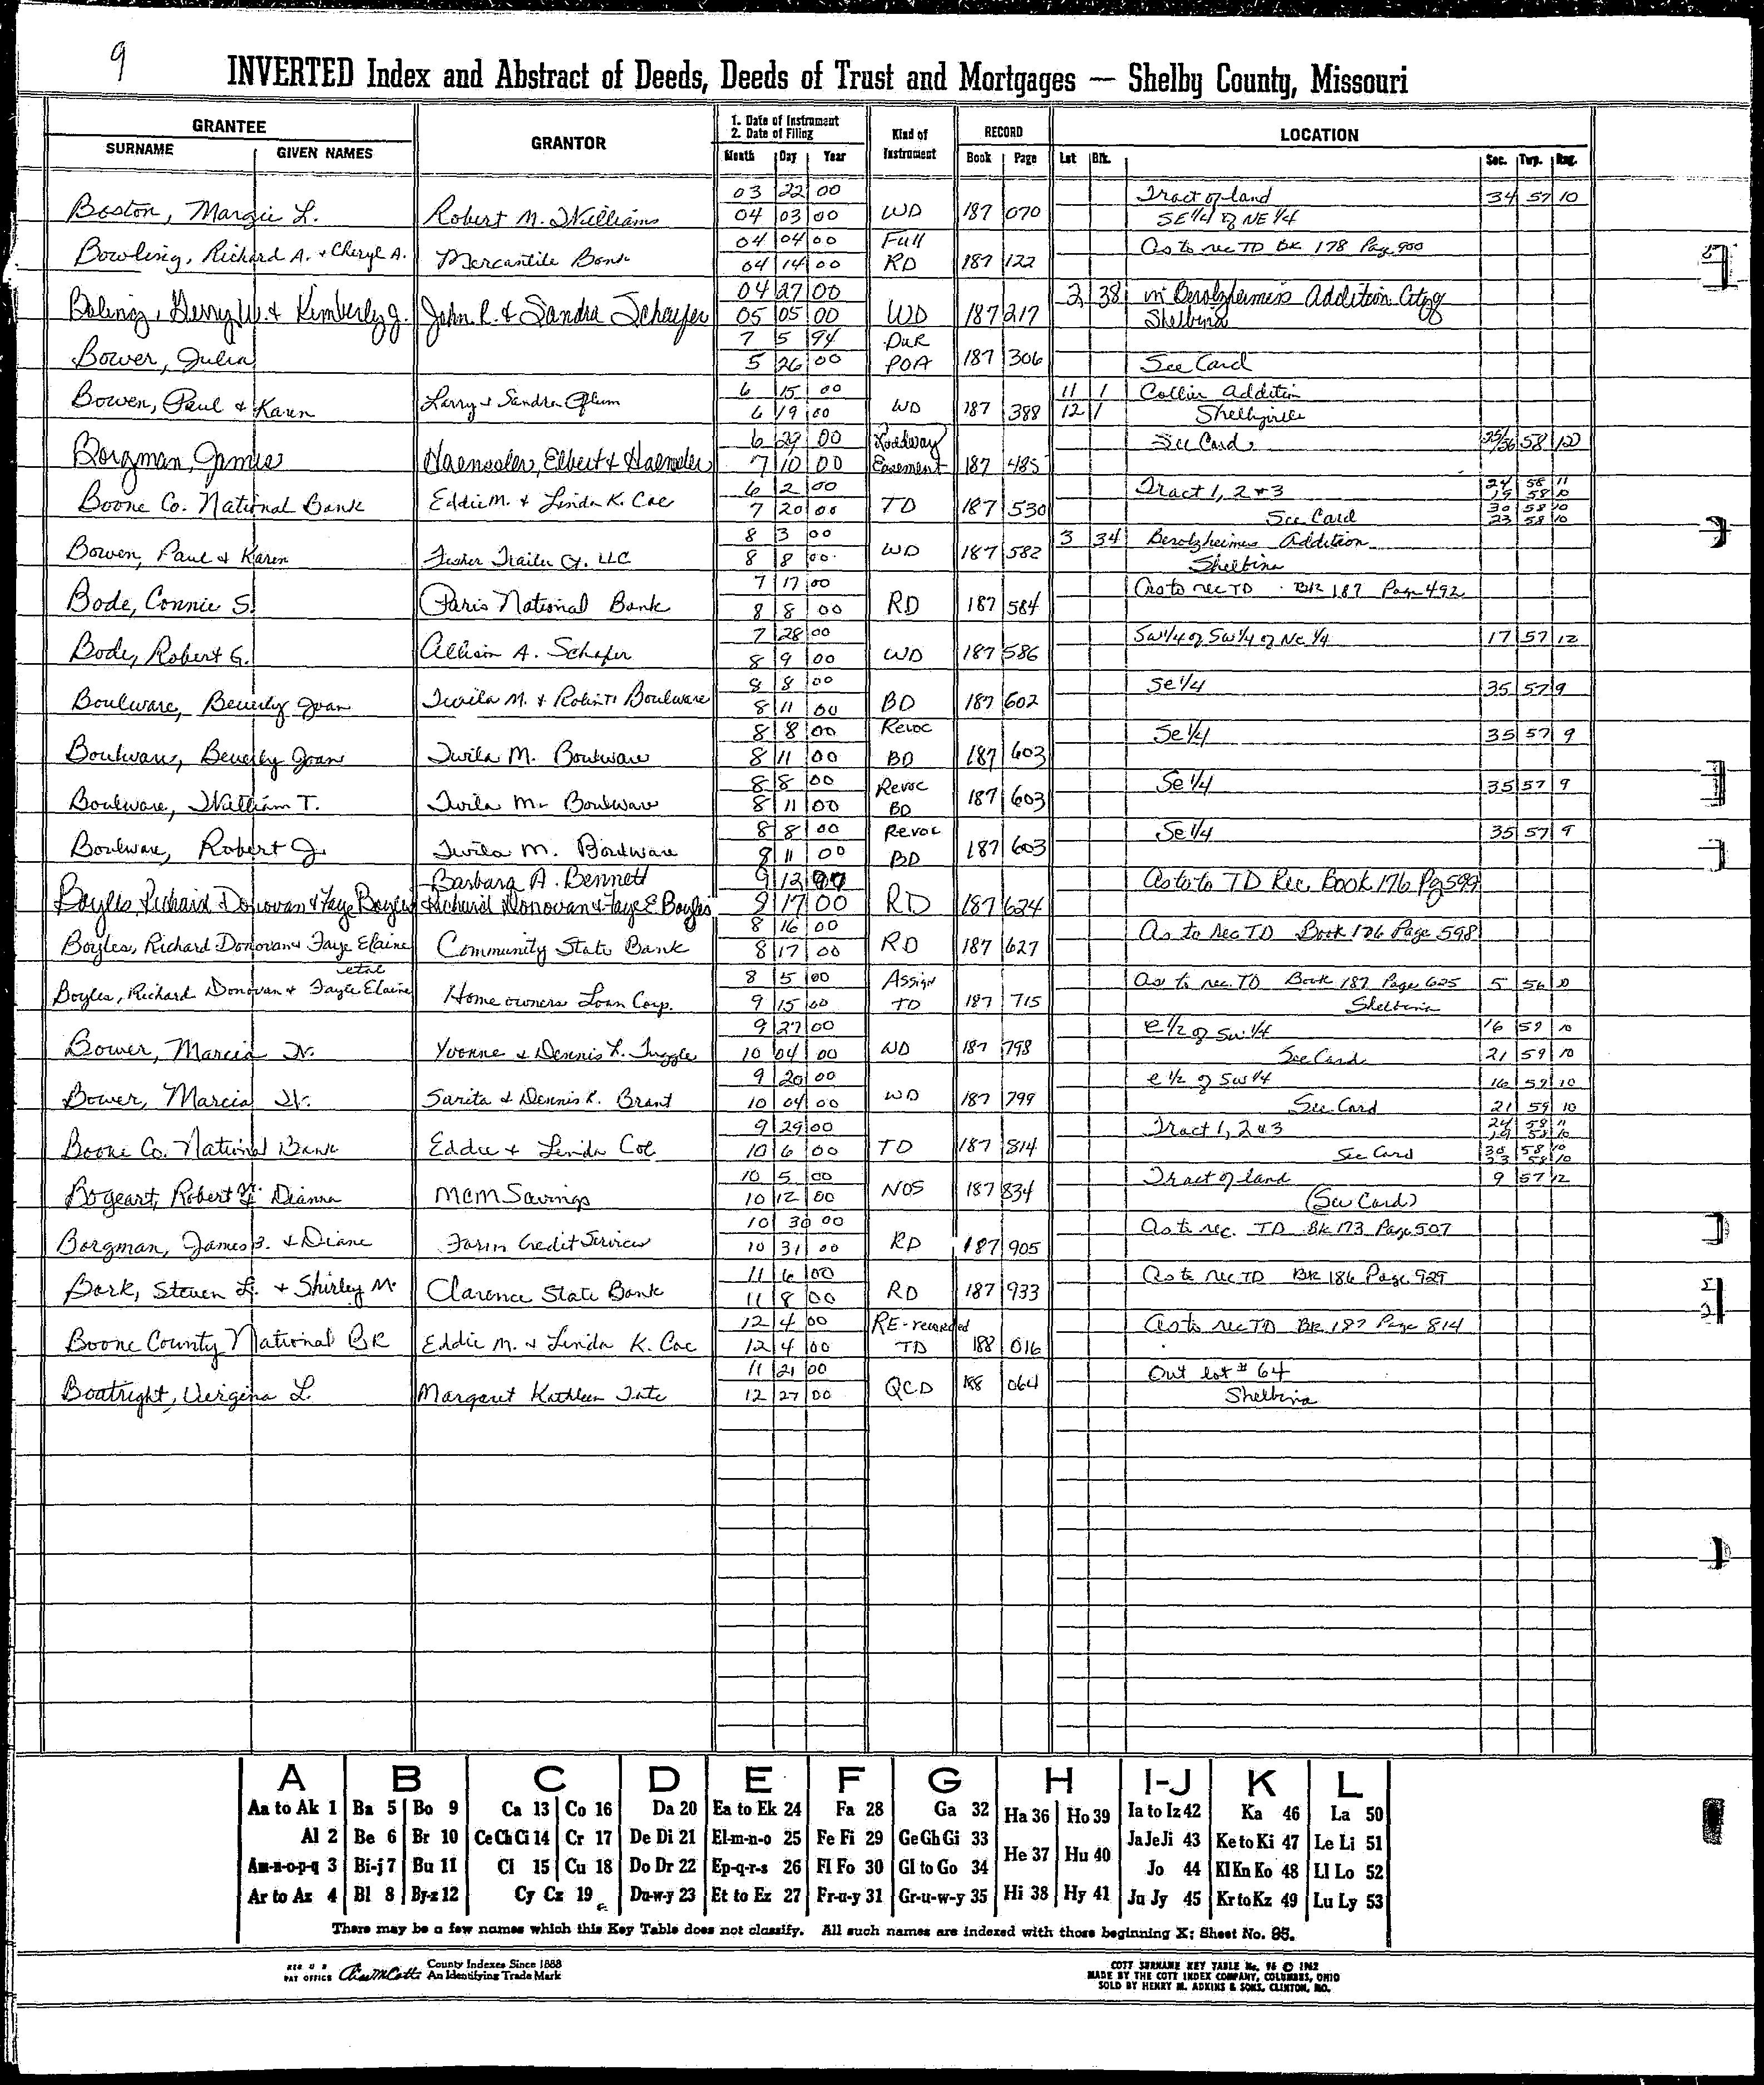 9
INVERTED Index and Abstract of Deeds, Deeds of Trust and Mortgages — Shelby County, Missouri
GRANTEE GRANTOR 1. Date of Instrument Kind of RECORD LOCATION
2. Date of Filing Instrument
SURNAME GIVEN NAMES Month Day Year Book Page Lot Blk. Sec. Twp. Rng.
03 22 00 Tract of land 34 57 10
Boston, Margie L. Robert M. Williams 04 03 00 WD 187 070 SE 1/4 of NE 1/4
04 04 00 Full As to rec TD BK 178 Pag 900
Bowling, Richard A. + Cheryl A. Mercantile Bank 04 14 00 RD 187 122
04 27 00 2 38 in Berolzheimers Addition City of
Boling, Gerry W. & Kimberly J. John R. & Sandra Schaefer 05 05 00 WD 187 217 Shelbina
7 5 94 DUR
Bower, Julia 5 26 00 POA 187 306 See Card
6 15 00 11 1 Collier Addition
Bowen, Paul & Karen Larry & Sandra 6 19 00 WD 187 388 12 1
6 29 00 Roadway See Card 58 10
Borgman, James Haenssler, Elbert & 7 10 00 Easement 187 485
6 2 00 Tract 1, 2 & 3 24 58 11
19 58 10
Boone Co. National Bank Eddie M. & Linda K. Coe 7 20 00 TD 187 530 See Card 30 58 10
23 58 10
8 3 00 3 34 Berolzheimers Addition
Bowen, Paul & Karen Fisher Trailer Co. LLC 8 8 00 WD 187 582 Shelbina
7 17 00 As to rec TD BK 187 Page 492
Bode, Connie S. Paris National Bank 8 8 00 RD 187 584
7 28 00 SW 1/4 of SW 1/4 of NE 1/4 17 57 12
Bode, Robert G. Allison A. Schafer 8 9 00 WD 187 586
8 8 00 Se 1/4 35 57 9
Boulware, Beverly Joan Twila M. & Robert Boulware 8 11 00 BD 187 602
8 8 00 Revoc Se 1/4 35 57 9
Boulware, Beverly Joan Twila M. Boulware 8 11 00 BD 187 603
8 8 00 Revoc Se 1/4 35 57 9
Boulware, William T. Twila M. Boulware 8 11 00 BD 187 603
8 8 00 Revoc Se 1/4 35 57 9
Boulware, Robert J. Twila M. Boulware 8 11 00 BD 187 603
Barbara A. Bennett 12 As to to TD Rec. Book 176 Pg 599
Boyles Richard Donovan & Faye Boyles Richard Donovan & Faye E Boyles 17 00 RD 187 624
8 16 00 As to rec TD Book 176 Page 598
Boyles, Richard Donovan & Faye Elaine Community State Bank 8 17 00 RD 187 627
etal 8 5 00 Assign As to rec. TD Book 187 Page 625 5 56 10
Boyles, Richard Donovan & Faye Elaine Home owners Loan Corp. 9 15 00 TD 187 715 Shelbina
9 27 00 e 1/2 of SW 1/4 16 59 10
Bower, Marcia N. Yvonne & Dennis L. Tuggle 10 04 00 WD 187 798 See Card 21 59 10
9 20 00 e 1/2 of SW 1/4 16 59 10
Bower, Marcia N. Sarita & Dennis R. Brant 10 04 00 WD 187 799 See Card 21 59 10
9 29 00 Tract 1, 2 & 3 24 58 11
19 58 10
Boone Co. National Bank Eddie & Linda Coe 10 6 00 TD 187 814 See Card 30 58 10
23 58 10
10 5 00 Tract of land 9 57 12
Bogeart, Robert & Dianna MCM Savings 10 12 00 NOS 187 834 (See Card)
10 30 00 As to rec. TD BK 173 Page 507
Borgman, James B. & Diane Farm Credit Services 10 31 00 RD 187 905
11 6 00 As to rec TD BK 186 Page 929
Bork, Steven L. + Shirley M. Clarence State Bank 11 8 00 RD 187 933
12 4 00 RE-recorded As to rec TD BK 187 Page 814
Boone County National BK Eddie M. & Linda K. Coe 12 4 00 TD 188 016
11 21 00 Out lot # 64
Boatright, Vergina L. Margaret Kathleen Tate 12 27 00 QCD 188 064 Shelbina
A B C D E F G H I-J K L
Aa to Ak 1 Ba 5 Bo 9 Ca 13 Co 16 Da 20 Ea to Ek 24 Fa 28 Ga 32 Ha 36 Ho 39 Ia to Iz 42 Ka 46 La 50
Al 2 Be 6 Br 10 Ce Ch Ci 14 Cr 17 De Di 21 El-m-n-o 25 Fe Fi 29 Ge Gh Gi 33 He 37 Hu 40 Ja Je Ji 43 Ke to Ki 47 Le Li 51
Am-n-o-p-q 3 Bi-j 7 Bu 11 Cl 15 Cu 18 Do Dr 22 Ep-q-r-s 26 Fl Fo 30 Gl to Go 34 Jo 44 Kl Kn Ko 48 Ll Lo 52
Ar to Az 4 Bl 8 By-z 12 Cy Cz 19 Du-w-y 23 Et to Ez 27 Fr-u-y 31 Gr-u-w-y 35 Hi 38 Hy 41 Ju Jy 45 Kr to Kz 49 Lu Ly 53
There may be a few names which this Key Table does not classify. All such names are indexed with those beginning X; Sheet No. 95.
REG U S PAT OFFICE County Indexes Since 1888
An Identifying Trade Mark
COTT SURNAME KEY TABLE No. 96 © 1962
MADE BY THE COTT INDEX COMPANY, COLUMBUS, OHIO
SOLD BY HENRY M. ADKINS & SONS, CLINTON, MO.